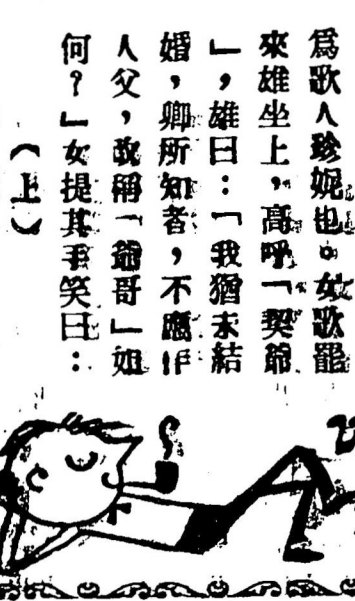 爲歌人珍妮也。女歌罷
來雄坐上,高呼「契爺
」,雄曰:「我猶未結
婚,卿所知者,不應作
人父,故稱「爺哥」如
何?」女提其手笑曰:
(上)